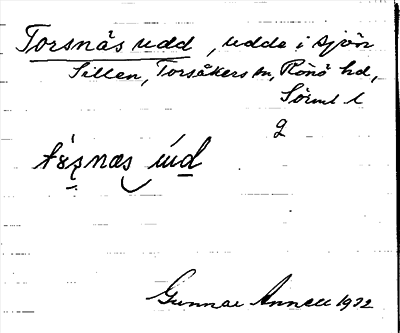 Torsnäs udd, udde i sjön
Sillen, Torsåkers sn, Rönö hd,
Sörml. l
2
Gunnar Annell 1932